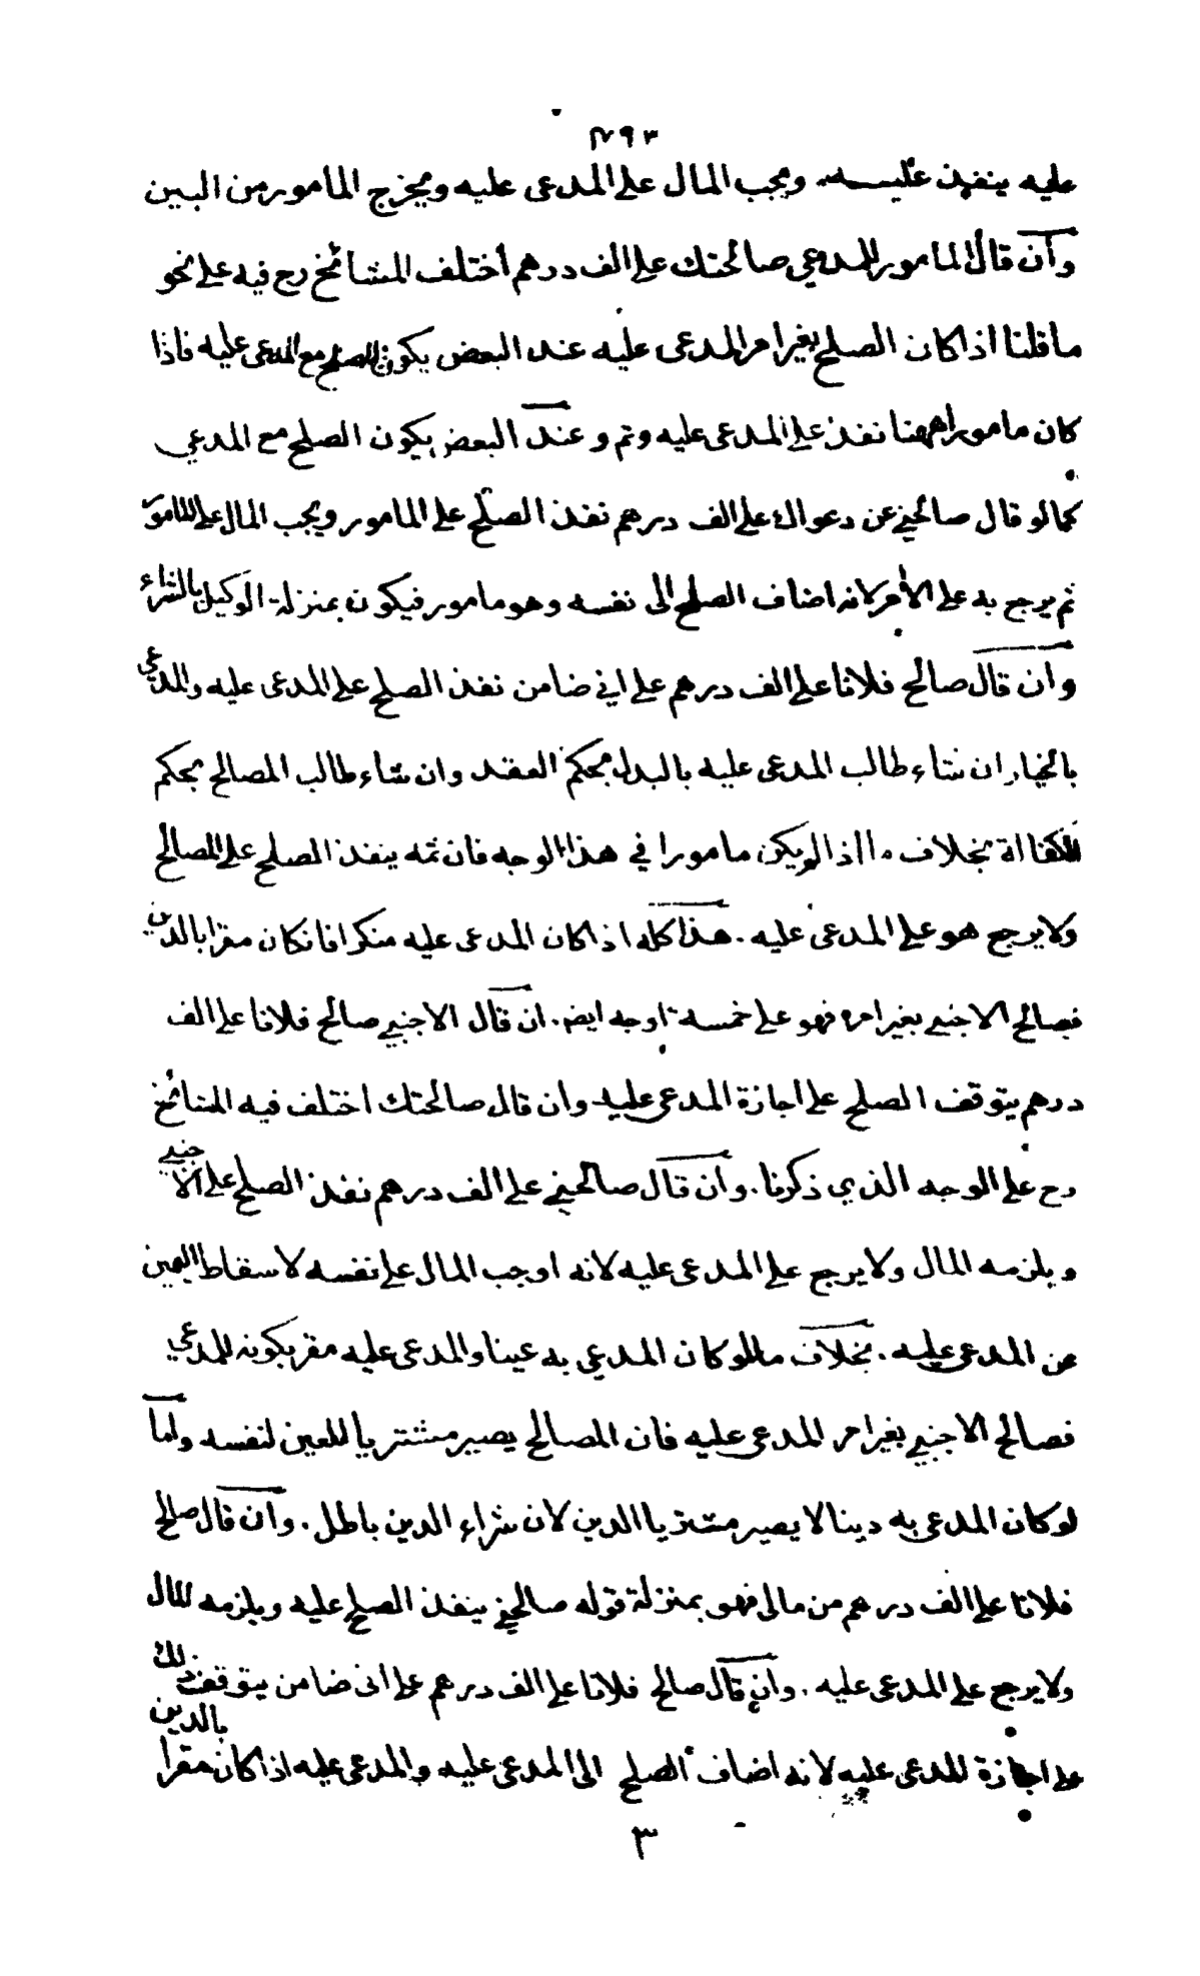 ٢٩٣
عليه ينفذ عليه ويجب المال على المدعى عليه ويخرج المامور من البين
وان قال المامور للمدعي صالحتك على الف درهم أختلف المشائخ رح فيه على نحو
ما قلنا اذا كان الصلح بغير امر المدعى عليه عند البعض يكون الصلح مع المدعى عليه فاذا
كان مامورا ههنا نفذ على المدعى عليه وتم وعند البعض يكون الصلح مع المدعي
كما لو قال صالحني عن دعواك على الف درهم نفذ الصلح على المامور ويجب المال على المامور
ثم يرجع به على الأمر لانه اضاف الصلح الى نفسه وهو مامور فيكون بمنزلة الوكيل بالشراء
وان قال صالح فلانا على الف درهم على اني ضامن نفذ الصلح على المدعى عليه والمدعي
بالخيار ان شاء طالب المدعى عليه بالبدل بحكم العقد وان شاء طالب المصالح بحكم
الكفالة بخلاف ما اذا لم يكن مامورا في هذا الوجه فان ثمه ينفذ الصلح على المصالح
ولا يرجع هو على المدعى عليه . هذا كله اذا كان المدعى عليه منكرا فانكان مقرا بالدين
فصالح الاجنبي بغير امره فهو على خمسة اوجه ايضا . ان قال الاجنبي صالح فلانا على الف
درهم يتوقف الصلح على اجازة المدعى عليه وان قال صالحتك اختلف فيه المشائخ
رح على الوجه الذي ذكرنا . وان قال صالحني على الف درهم نفذ الصلح على الاجنبي
ويلزمه المال ولا يرجع على المدعى عليه لانه اوجب المال على نفسه لاسقاط اليمين
عن المدعى عليه . بخلاف ما لو كان المدعي به عينا والمدعى عليه مقر بكونه للمدعي
فصالح الاجنبي بغير امر المدعى عليه فان المصالح يصير مشتريا للعين لنفسه واما
لو كان المدعى به دينا لا يصير مشتريا الدين لان شراء الدين باطل . وان قال صالح
فلانا على الف درهم من مالى فهو بمنزلة قوله صالحني ينفذ الصلح عليه ويلزمه المال
ولا يرجع على المدعى عليه . وان قال صالح فلانا على الف درهم على انى ضامن يتوقف ذلك
على اجازة المدعى عليه لانه اضاف الصلح الى المدعى عليه والمدعى عليه اذا كان مقرا بالدين
٣